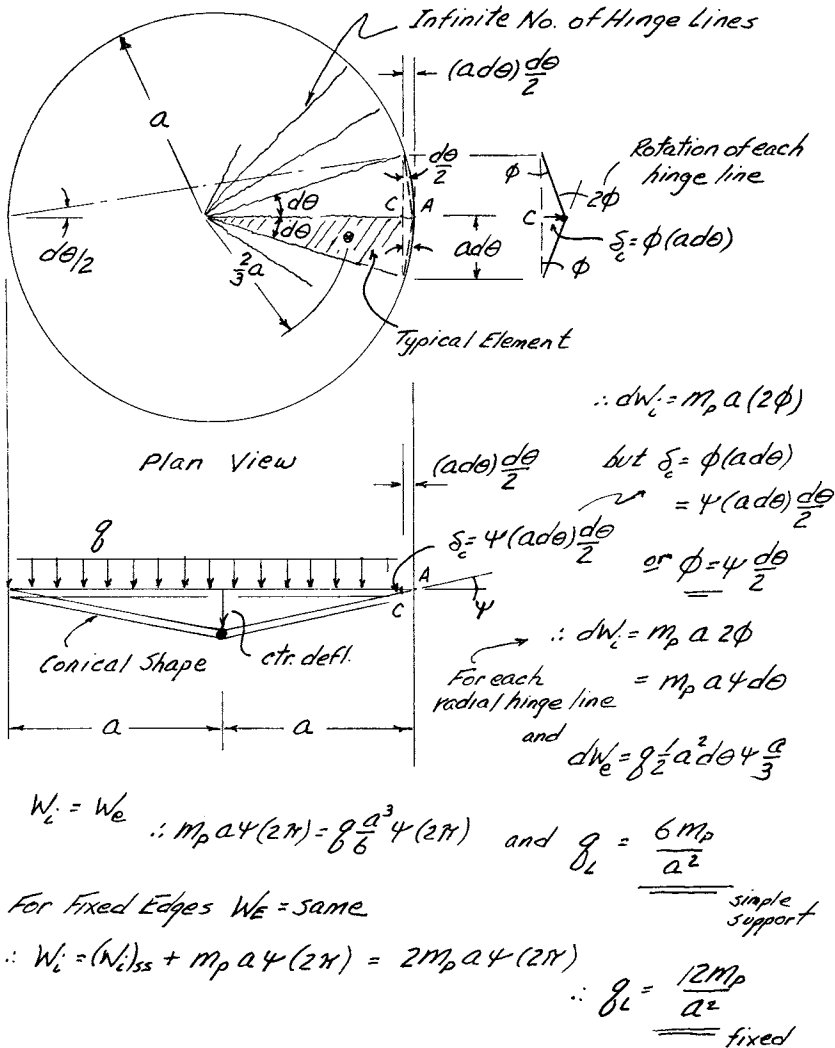 Infinite No. of Hinge Lines
(adθ) dθ/2
a
dθ/2
Rotation of each
hinge line
φ
2φ
C
A
dθ
dθ
C
dθ/2
2/3 a
adθ
δc = φ(adθ)
φ
Typical Element
∴ dWi = mp a (2φ)
Plan View
(adθ) dθ/2
but δc = φ(adθ)
= ψ(adθ) dθ/2
q
δc = ψ(adθ) dθ/2
or φ = ψ dθ/2
A
C
ψ
Conical Shape
ctr. defl.
∴ dWi = mp a 2φ
For each
radial hinge line
= mp a ψ dθ
a
a
and
dWe = q 1/2 a² dθ ψ a/3
Wi = We
∴ mp a ψ (2π) = q a³/6 ψ (2π)
and qL = 6mp/a²
simple
support
For Fixed Edges WE = same
∴ Wi = (Wi)ss + mp a ψ (2π) = 2mp a ψ (2π)
∴ qL = 12mp/a²
fixed